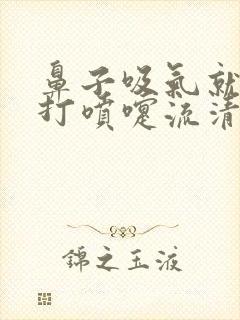 鼻子吸氣就
打噴嚏流清
錦之玉液